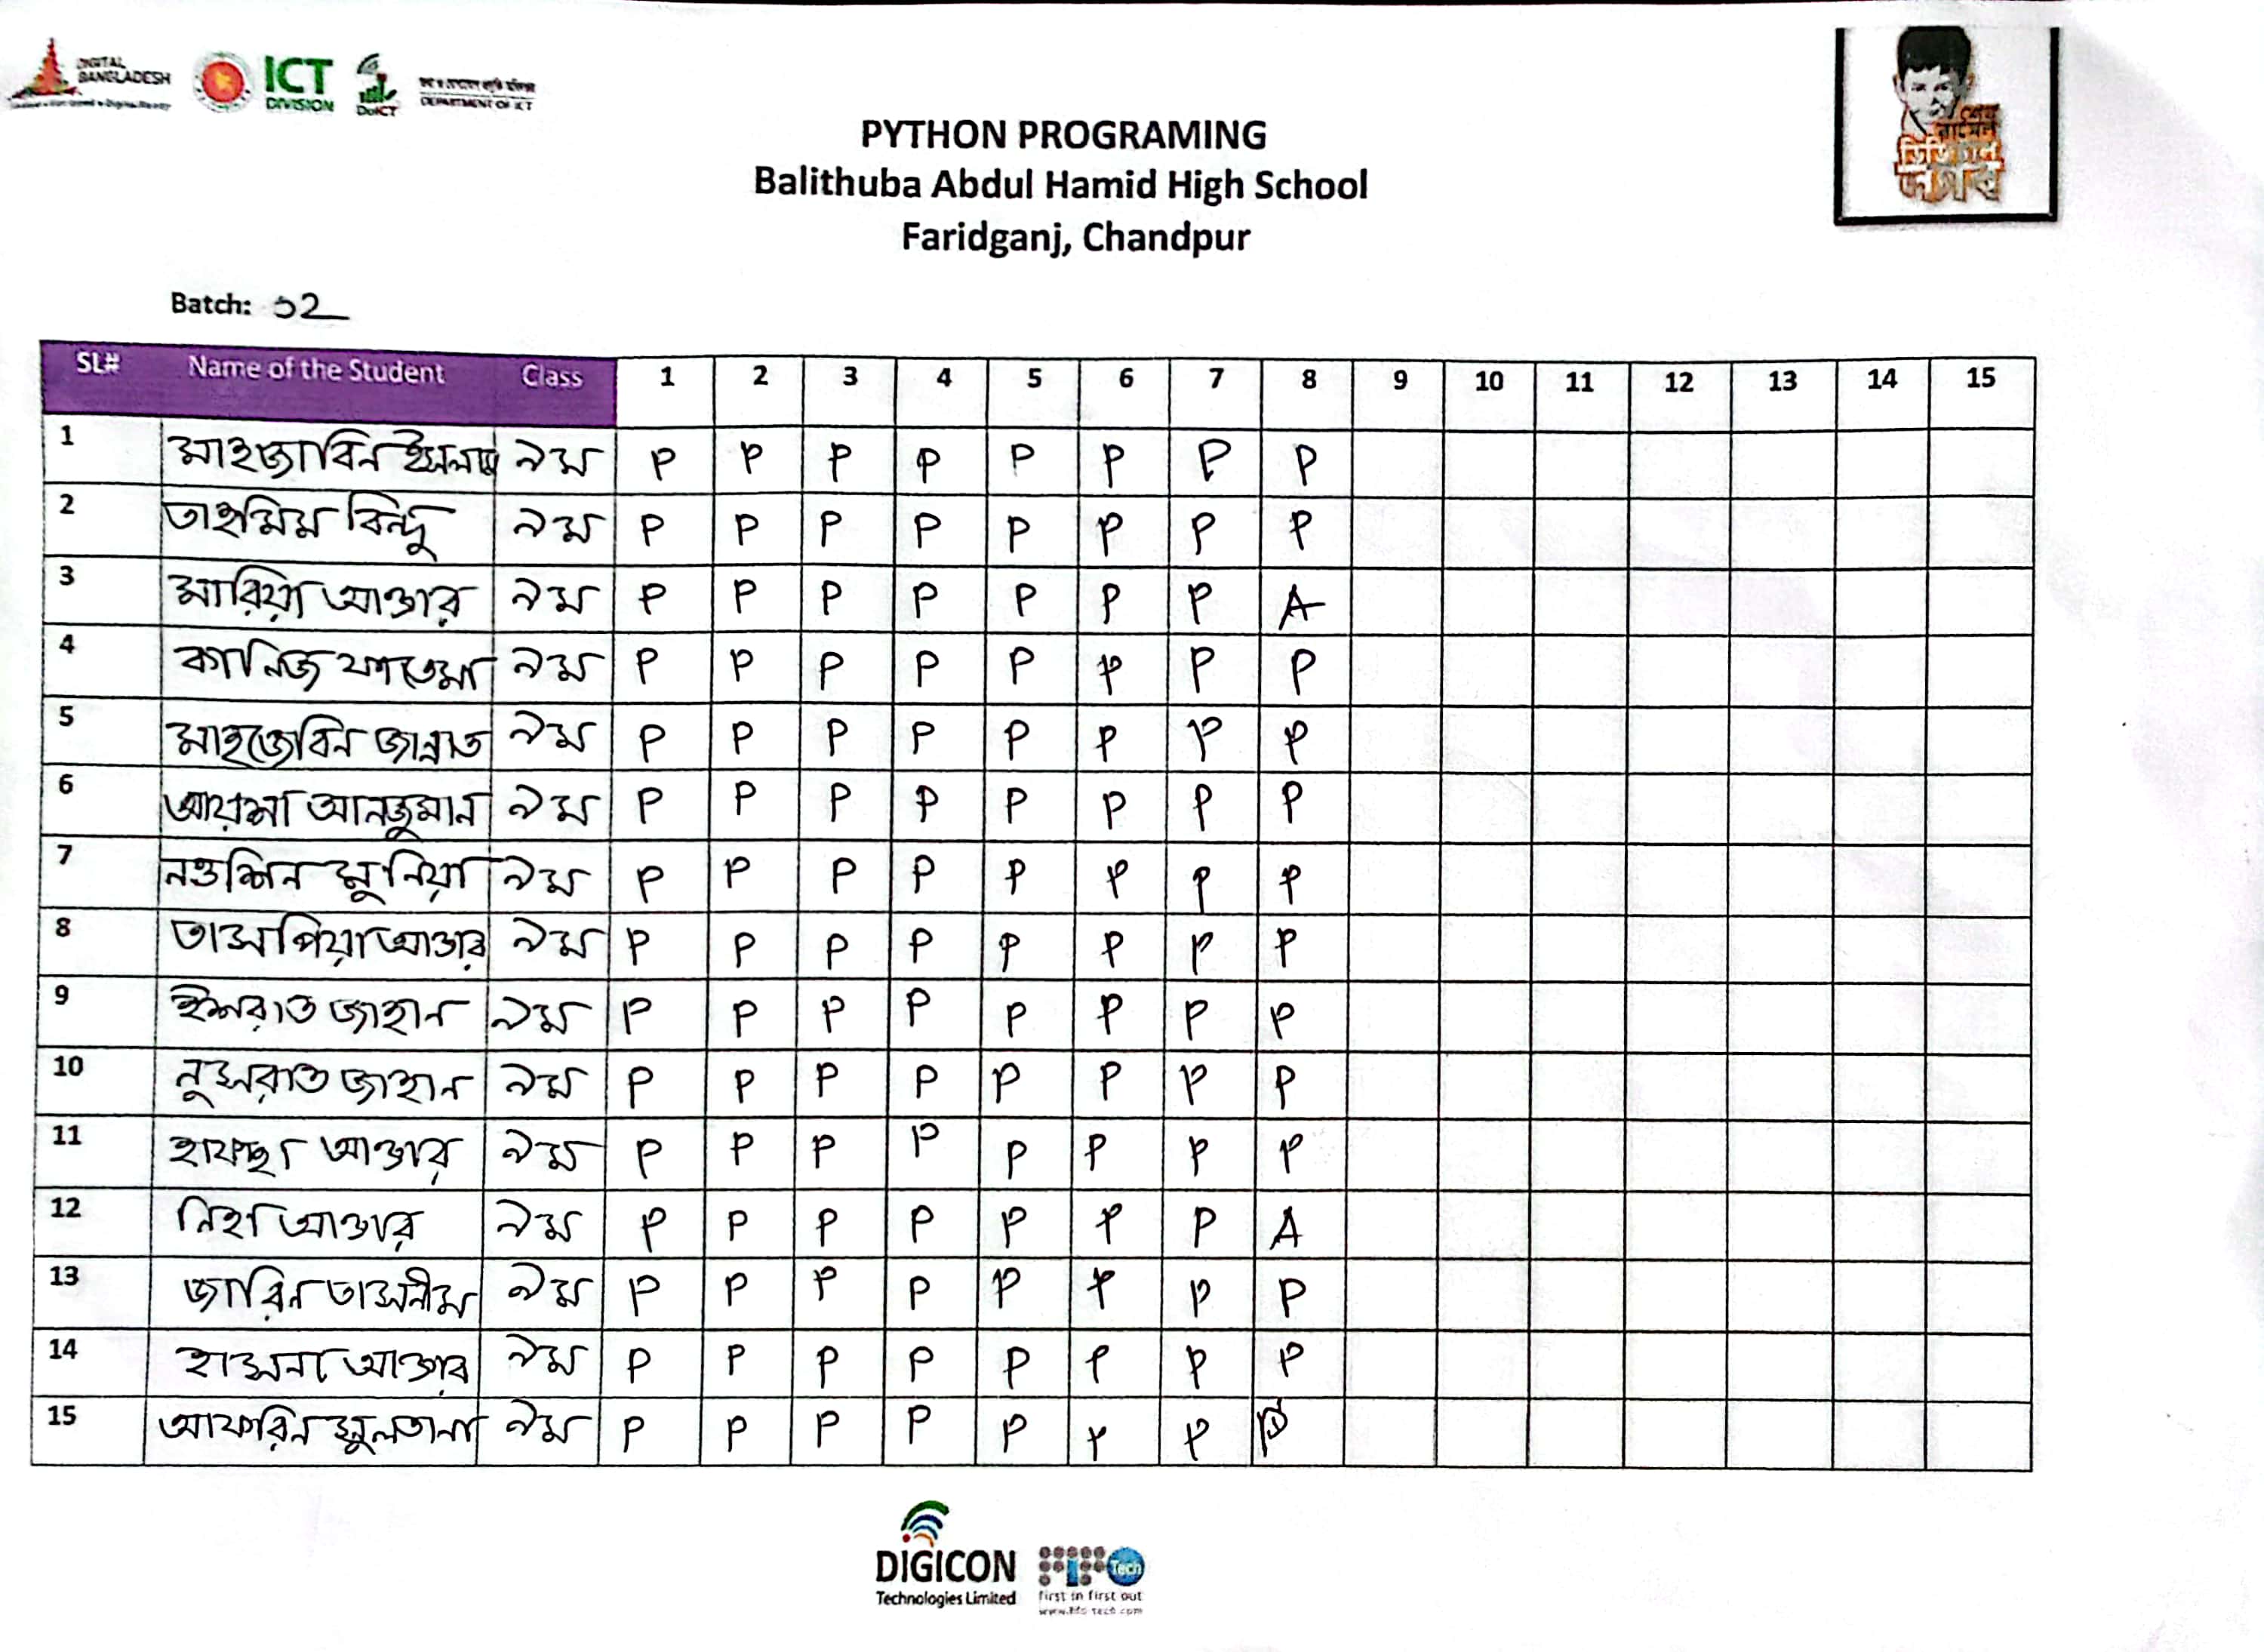 DIGITAL
BANGLADESH
ICT
DIVISION
DoICT
DEPARTMENT OF ICT
শেখ
রাসেল
ডিজিটাল
ল্যাব
PYTHON PROGRAMING
Balithuba Abdul Hamid High School
Faridganj, Chandpur
Batch: 02
SL# Name of the Student Class 1 2 3 4 5 6 7 8 9 10 11 12 13 14 15
1 মাহজাবিন ইসলাম ৯ম P P P P P P P P
2 তাহমিম বিন্দু ৯ম P P P P P P P P
3 মারিয়া আক্তার ৯ম P P P P P P P A
4 কানিজ ফাতেমা ৯ম P P P P P P P P
5 মাহজেবিন জান্নাত ৯ম P P P P P P P P
6 আয়শা আনজুমান ৯ম P P P P P P P P
7 নওশিন মুনিয়া ৯ম P P P P P P P P
8 তাসপিয়া আক্তার ৯ম P P P P P P P P
9 ইশরাত জাহান ৯ম P P P P P P P P
10 নুসরাত জাহান ৯ম P P P P P P P P
11 হাফছা আক্তার ৯ম P P P P P P P P
12 নিহা আক্তার ৯ম P P P P P P P A
13 জারিন তাসনীম ৯ম P P P P P P P P
14 হাসনা আক্তার ৯ম P P P P P P P P
15 আফরিন সুলতানা ৯ম P P P P P P P P
DIGICON
Technologies Limited
Tech
first in first out